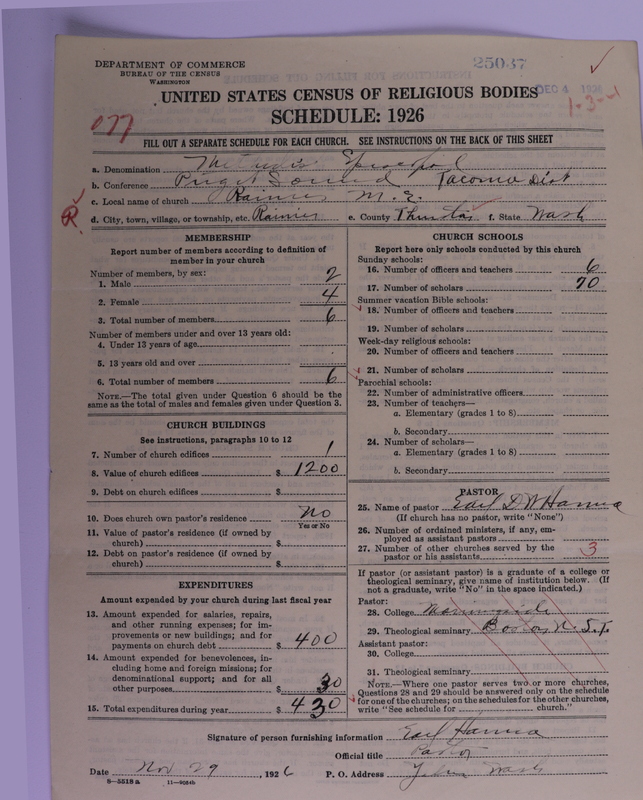 DEPARTMENT OF COMMERCE
BUREAU OF THE CENSUS
WASHINGTON
25037
DEC 4 1926
1-3-
077
UNITED STATES CENSUS OF RELIGIOUS BODIES
SCHEDULE: 1926
FILL OUT A SEPARATE SCHEDULE FOR EACH CHURCH. SEE INSTRUCTIONS ON THE BACK OF THIS SHEET
a. Denomination Methodist Episcopal
b. Conference Puget Sound Tacoma Dist
c. Local name of church Rainier M. E.
R
d. City, town, village, or township, etc. Rainier e. County Thurston f. State Wash
MEMBERSHIP
Report number of members according to definition of
member in your church
Number of members, by sex:
1. Male 2
2. Female 4
3. Total number of members 6
Number of members under and over 13 years old:
4. Under 13 years of age
5. 13 years old and over
6. Total number of members 6
NOTE.—The total given under Question 6 should be the
same as the total of males and females given under Question 3.
CHURCH BUILDINGS
See instructions, paragraphs 10 to 12
7. Number of church edifices 1
8. Value of church edifices $ 1200
9. Debt on church edifices $
10. Does church own pastor's residence No
Yes or No
11. Value of pastor's residence (if owned by
church) $
12. Debt on pastor's residence (if owned by
church) $
EXPENDITURES
Amount expended by your church during last fiscal year
13. Amount expended for salaries, repairs,
and other running expenses; for im-
provements or new buildings; and for
payments on church debt $ 400
14. Amount expended for benevolences, in-
cluding home and foreign missions; for
denominational support; and for all
other purposes $ 30
15. Total expenditures during year $ 430
CHURCH SCHOOLS
Report here only schools conducted by this church
Sunday schools:
16. Number of officers and teachers 6
17. Number of scholars 70
Summer vacation Bible schools:
18. Number of officers and teachers
19. Number of scholars
Week-day religious schools:
20. Number of officers and teachers
21. Number of scholars
Parochial schools:
22. Number of administrative officers
23. Number of teachers—
a. Elementary (grades 1 to 8)
b. Secondary
24. Number of scholars—
a. Elementary (grades 1 to 8)
b. Secondary
PASTOR
25. Name of pastor Earl D W Hanna
(If church has no pastor, write "None")
26. Number of ordained ministers, if any, em-
ployed as assistant pastors
27. Number of other churches served by the
pastor or his assistants 3
If pastor (or assistant pastor) is a graduate of a college or
theological seminary, give name of institution below. (If
not a graduate, write "No" in the space indicated.)
Pastor:
28. College Morningside
29. Theological seminary Boston U. S. T.
Assistant pastor:
30. College
31. Theological seminary
NOTE.—Where one pastor serves two or more churches,
Questions 28 and 29 should be answered only on the schedule
for one of the churches; on the schedules for the other churches,
write "See schedule for church."
Signature of person furnishing information Earl Hanna
Official title Pastor
Date Nov 29, 1926 P. O. Address Yelm Wash
8-5518a 11-9054b